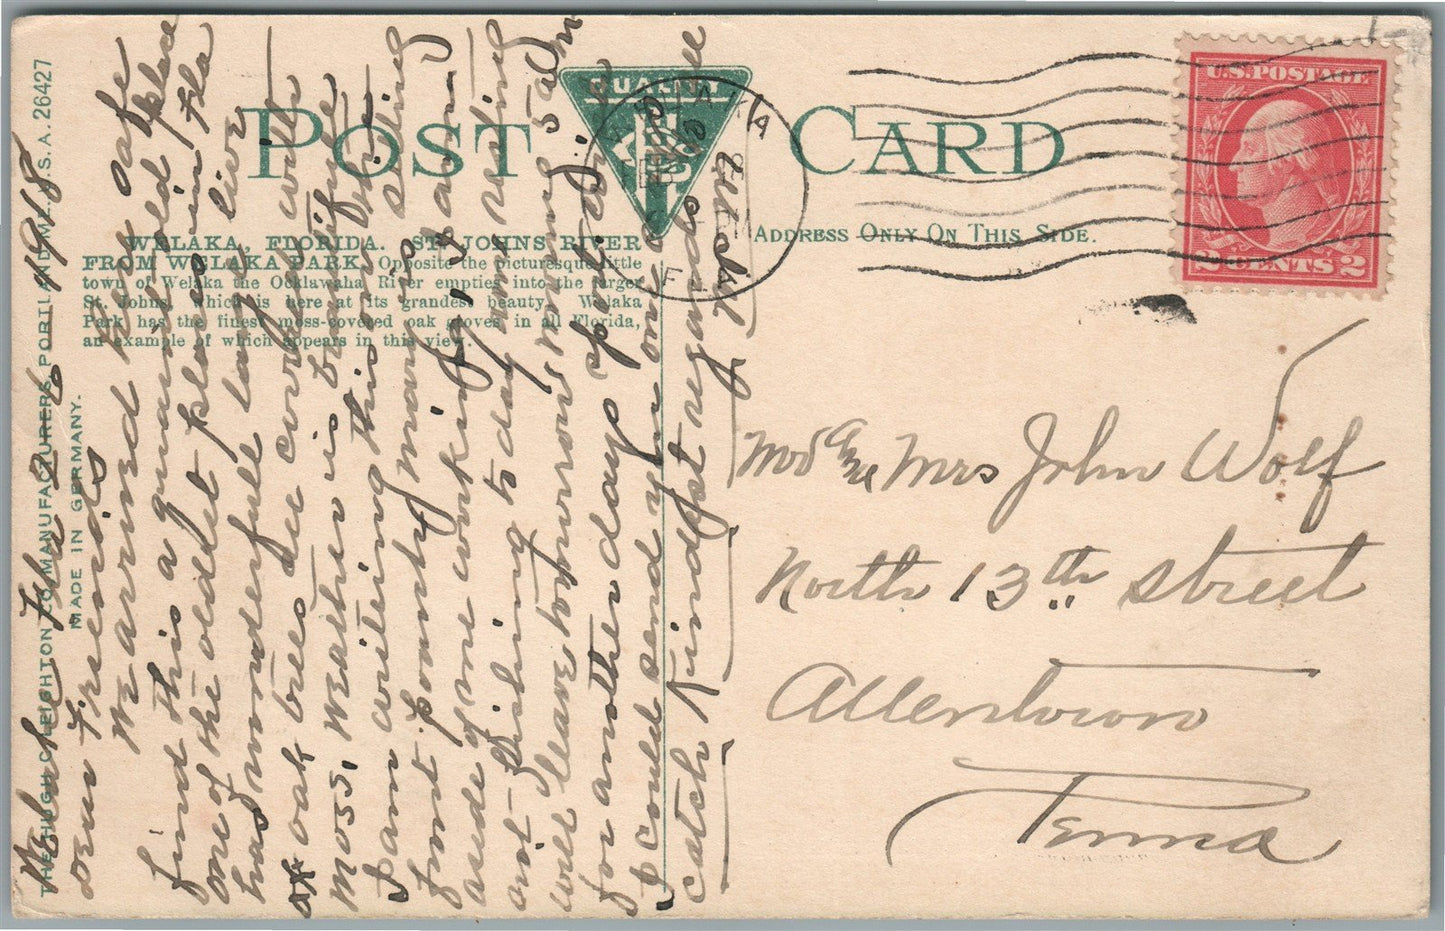 THE HUGH C. LEIGHTON CO. MANUFACTURERS, PORTLAND, ME., U.S.A. 26427
MADE IN GERMANY.
POST CARD
QUALITY
WELAKA, FLORIDA. ST. JOHNS RIVER
FROM WELAKA PARK. Opposite the picturesque little
town of Welaka the Ocklawaha River empties into the larger
St. Johns, which is here at its grandest beauty. Welaka
Park has the finest moss-covered oak groves in all Florida,
an example of which appears in this view.
ADDRESS ONLY ON THIS SIDE.
U.S. POSTAGE
2 CENTS 2
FLA
Fla 26 1918
Dear Friends
We arrived here safe
find this a quaint old place
one of the oldest places in Fla
has wonderfull large live
oak trees all covered with
moss, weather is beautifull
I am writing this on the
front Country man is sitting
aside of me working, I am
not fishing to day am resting
will leave tomorrow morning 5 am
for another days sport. Wish
I could send you one of our
catch Kindest regards to all
Mr and Mrs John Wolf
North 13th Street
Allentown
Penna